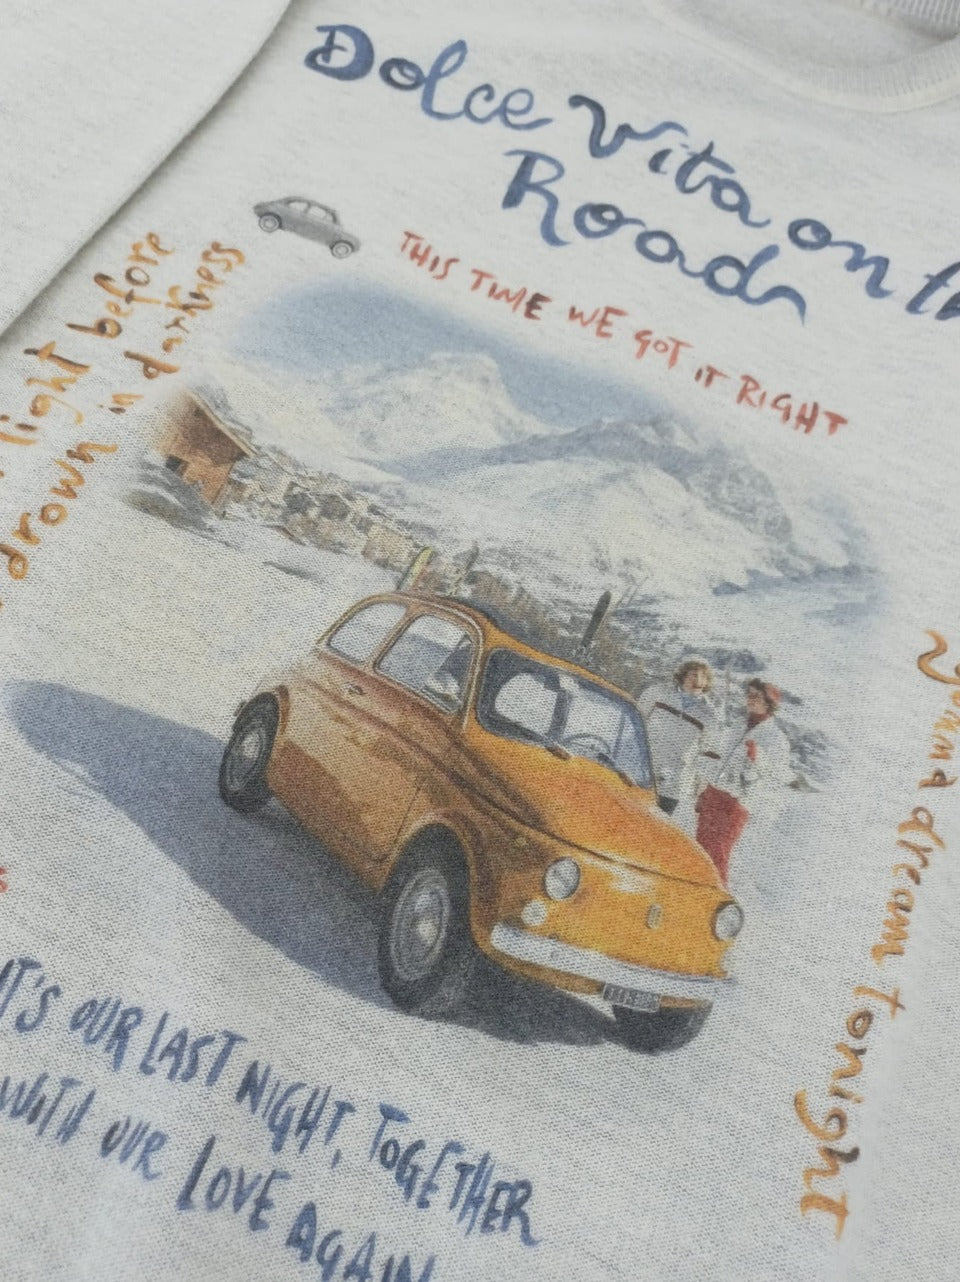 Dolce Vita on th
Road
THIS TIME WE GOT IT RIGHT
light before
drown in darkness
gonna dream tonight
IT'S OUR LAST NIGHT, TOGETHER
WITH OUR LOVE AGAIN